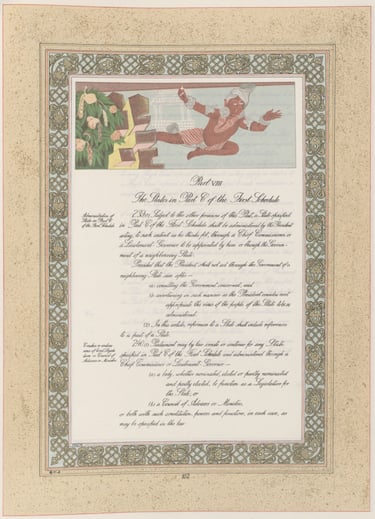 Part VIII
The States in Part C of the First Schedule
Administration of
States in Part C
of the First Schedule.
239.(1) Subject to the other provisions of this Part, a State specified
in Part C of the First Schedule shall be administered by the President
acting, to such extent as he thinks fit, through a Chief Commissioner or
a Lieutenant-Governor to be appointed by him or through the Govern-
ment of a neighbouring State:
Provided that the President shall not act through the Government of a
neighbouring State save after —
(a) consulting the Government concerned; and
(b) ascertaining in such manner as the President considers most
appropriate the views of the people of the State to be so
administered.
(2) In this article, references to a State shall include references
to a part of a State.
Creation or contin-
uance of local Legis-
latures or Council of
Advisers or Ministers.
240.(1) Parliament may by law create or continue for any State
specified in Part C of the First Schedule and administered through a
Chief Commissioner or Lieutenant-Governor —
(a) a body, whether nominated, elected or partly nominated
and partly elected, to function as a Legislature for
the State; or
(b) a Council of Advisers or Ministers,
or both with such constitution, powers and functions, in each case, as
may be specified in the law.
102